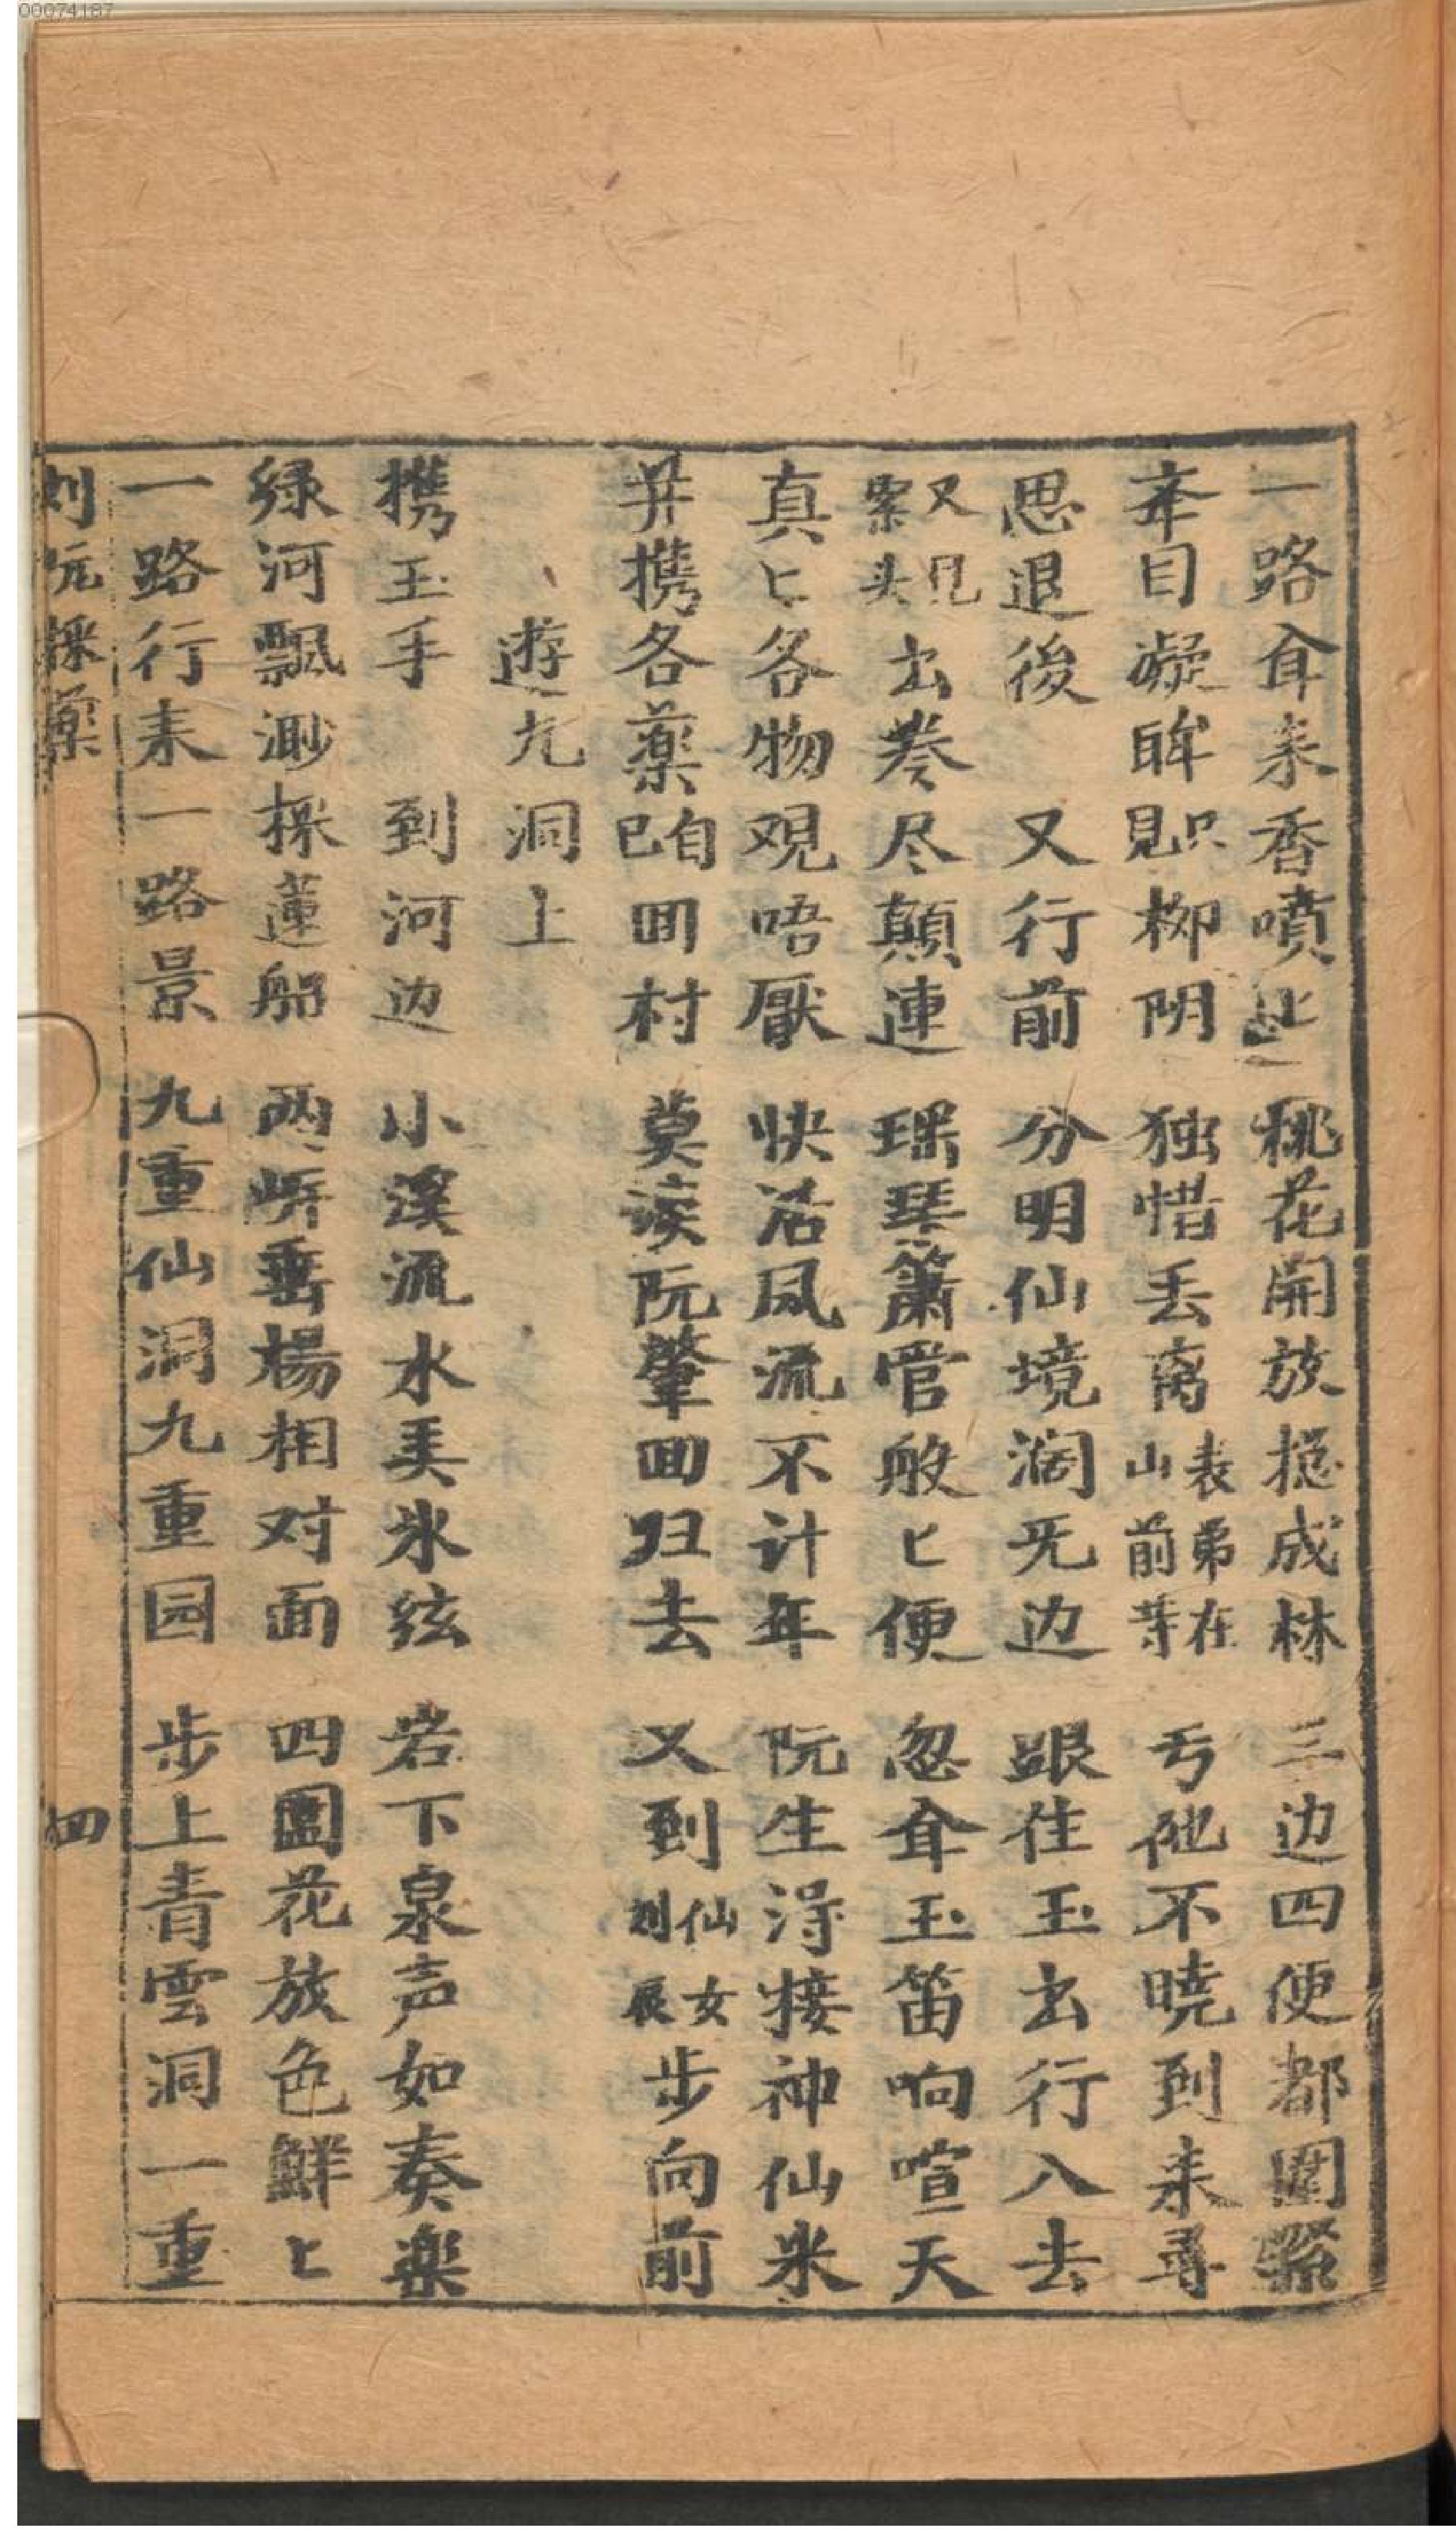 00074187
一路耳来香噴匕 桃花開放摠成林 三边四便都圍緊
夲目凝眸只見柳阴 独惜丢离表弟在山前等 丂他不曉到来尋
思退後 又行前 分明仙境闊旡边 跟住玉出行入去
又見眾头出巻尽顛連 瑶琴簫管般匕便 忽耳玉笛响喧天
真匕各物观唔厭 快活風流不计年 阮生淂接神仙米
并携各薬自己囬村 莫谈阮肇囬归去 又到仙女刘辰步向前
遊九洞上
携玉手 到河边 小溪流水美氷弦 岩下泉声如奏楽
绿河飄渺採蓮船 两岸垂楊相对面 四圍花放色鮮匕
一路行来一路景 九重仙洞九重园 步上青雲洞一重
刘阮採藥 四